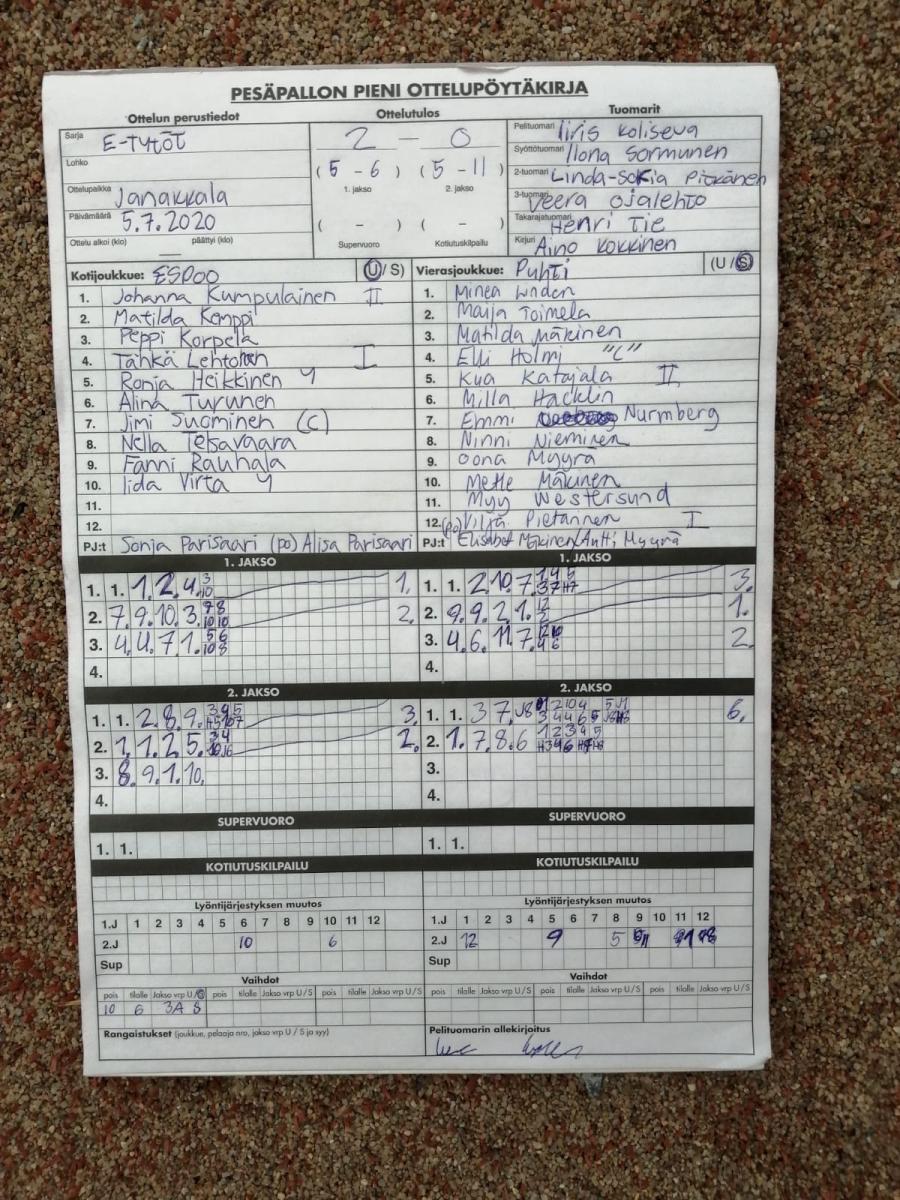 PESÄPALLON PIENI OTTELUPÖYTÄKIRJA
Ottelun perustiedot Ottelutulos Tuomarit
Sarja E-TYTÖT
Lohko
Ottelupaikka Janakkala
Päivämäärä 5.7.2020
Ottelu alkoi (klo) päättyi (klo)
2 - 0
(5 - 6) (5 - 11)
1. jakso 2. jakso
( - ) ( - )
Supervuoro Kotiutuskilpailu
Pelituomari Iiris Koliseva
Syöttötuomari Ilona Sormunen
2-tuomari Linda-Sofia Pitkänen
3-tuomari Veera Ojalehto
Takarajatuomari Henri Tie
Kirjuri Aino Kokkinen
Kotijoukkue: ESPOO (U/S)
1. Johanna Kumpulainen II
2. Matilda Kemppi
3. Peppi Korpela
4. Tähkä Lehtonen I
5. Ronja Heikkinen Y
6. Alina Turunen
7. Jimi Suominen (C)
8. Nella Telsavaara
9. Fanni Rauhala
10. Iida Virta Y
11.
12.
PJ:t Sonja Parisaari (PO) Alisa Parisaari
Vierasjoukkue: Puhti (U/S)
1. Minea Linden
2. Maija Toimela
3. Matilda Mäkinen
4. Elli Holmi "C"
5. Kaa Katajala II
6. Milla Hacklin
7. Emmi Nurmberg
8. Ninni Nieminen
9. Oona Myyrä
10. Mette Mäkinen
11. Myy Westersund
12. (po) Vilja Pietarinen I
PJ:t Elisabet Mäkinen Antti Myyrä
1. JAKSO
1. 1. 1. 2. 4. 3 10 1.
2. 7. 9. 10. 3. 2.
3. 4. 4. 7. 1. 5 6 10 8
4.
1. JAKSO
1. 1. 2. 10. 7. 3.
2. 9. 9. 2. 1. 12 2 1.
3. 4. 6. 11. 7. 2.
4.
2. JAKSO
1. 1. 2. 8. 9. 3.
2. 1. 1. 2. 5. 2.
3. 8. 9. 1. 10.
4.
2. JAKSO
1. 1. 3 7. 6.
2. 1. 7. 8. 6
3.
4.
SUPERVUORO
1. 1.
SUPERVUORO
1. 1.
KOTIUTUSKILPAILU
KOTIUTUSKILPAILU
Lyöntijärjestyksen muutos
1.J 1 2 3 4 5 6 7 8 9 10 11 12
2.J 10 6
Sup
Lyöntijärjestyksen muutos
1.J 1 2 3 4 5 6 7 8 9 10 11 12
2.J 12 9 5
Sup
Vaihdot
pois tilalle Jakso vrp U/S pois tilalle Jakso vrp U/S pois tilalle Jakso vrp U/S
10 6 3A S
Vaihdot
pois tilalle Jakso vrp U/S pois tilalle Jakso vrp U/S pois tilalle Jakso vrp U/S
Rangaistukset (joukkue, pelaaja nro, jakso vrp U / S ja syy)
Pelituomarin allekirjoitus